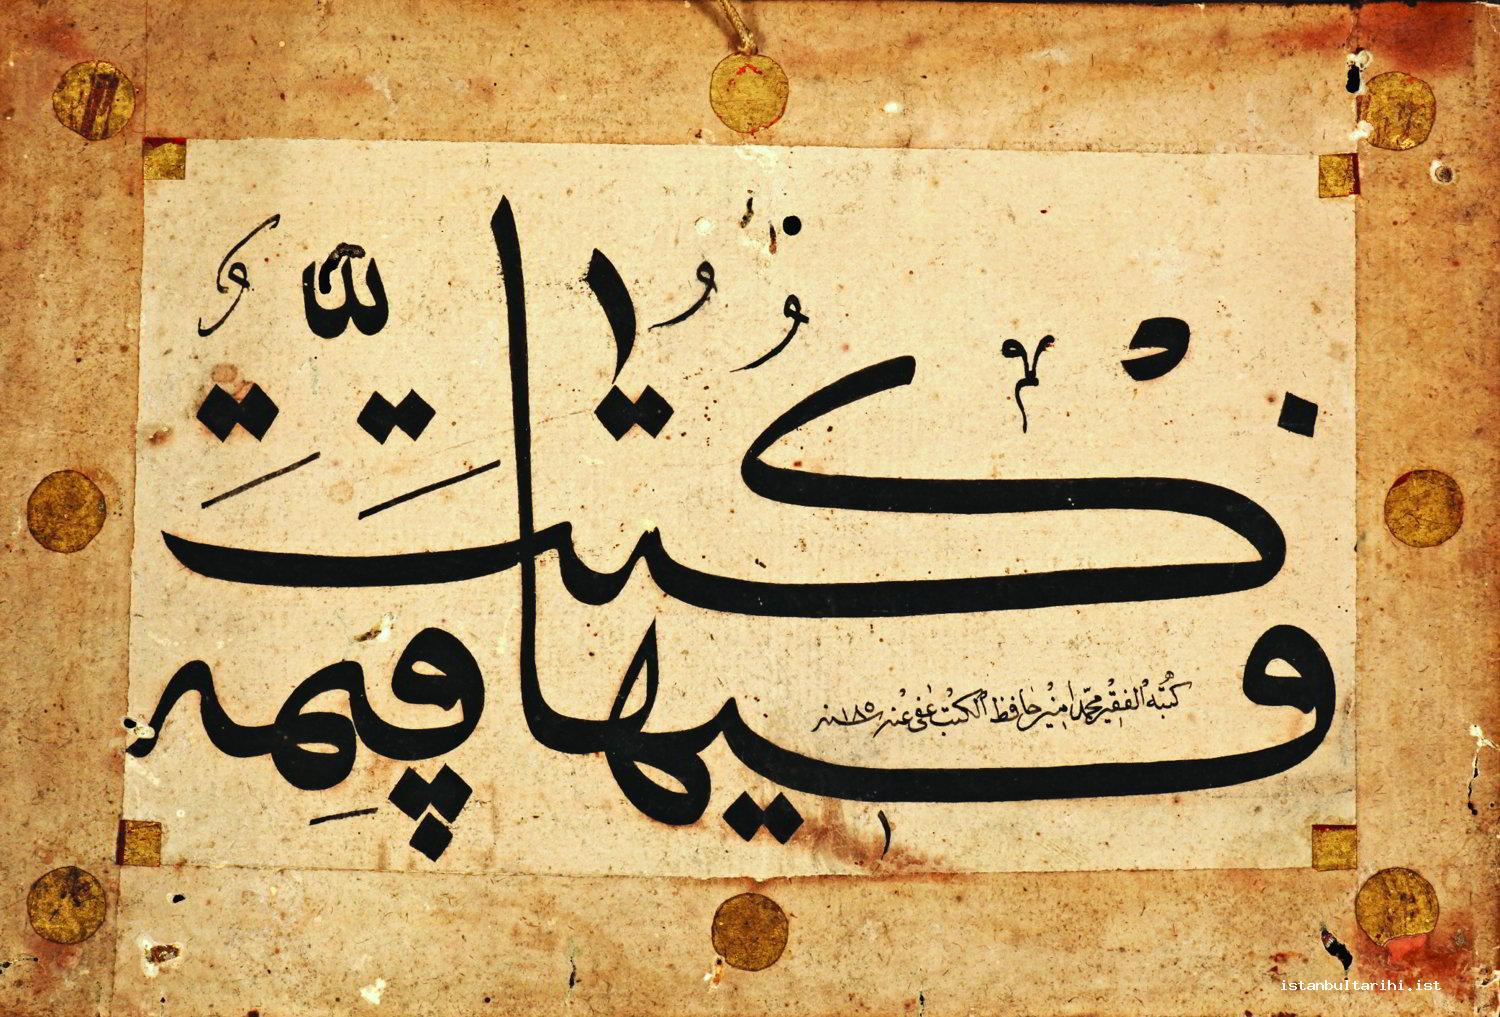 فيها كتب قيمة
كتبه الفقير محمد امين حافظ الكتب عفى عنه
istanbultarihi.ist